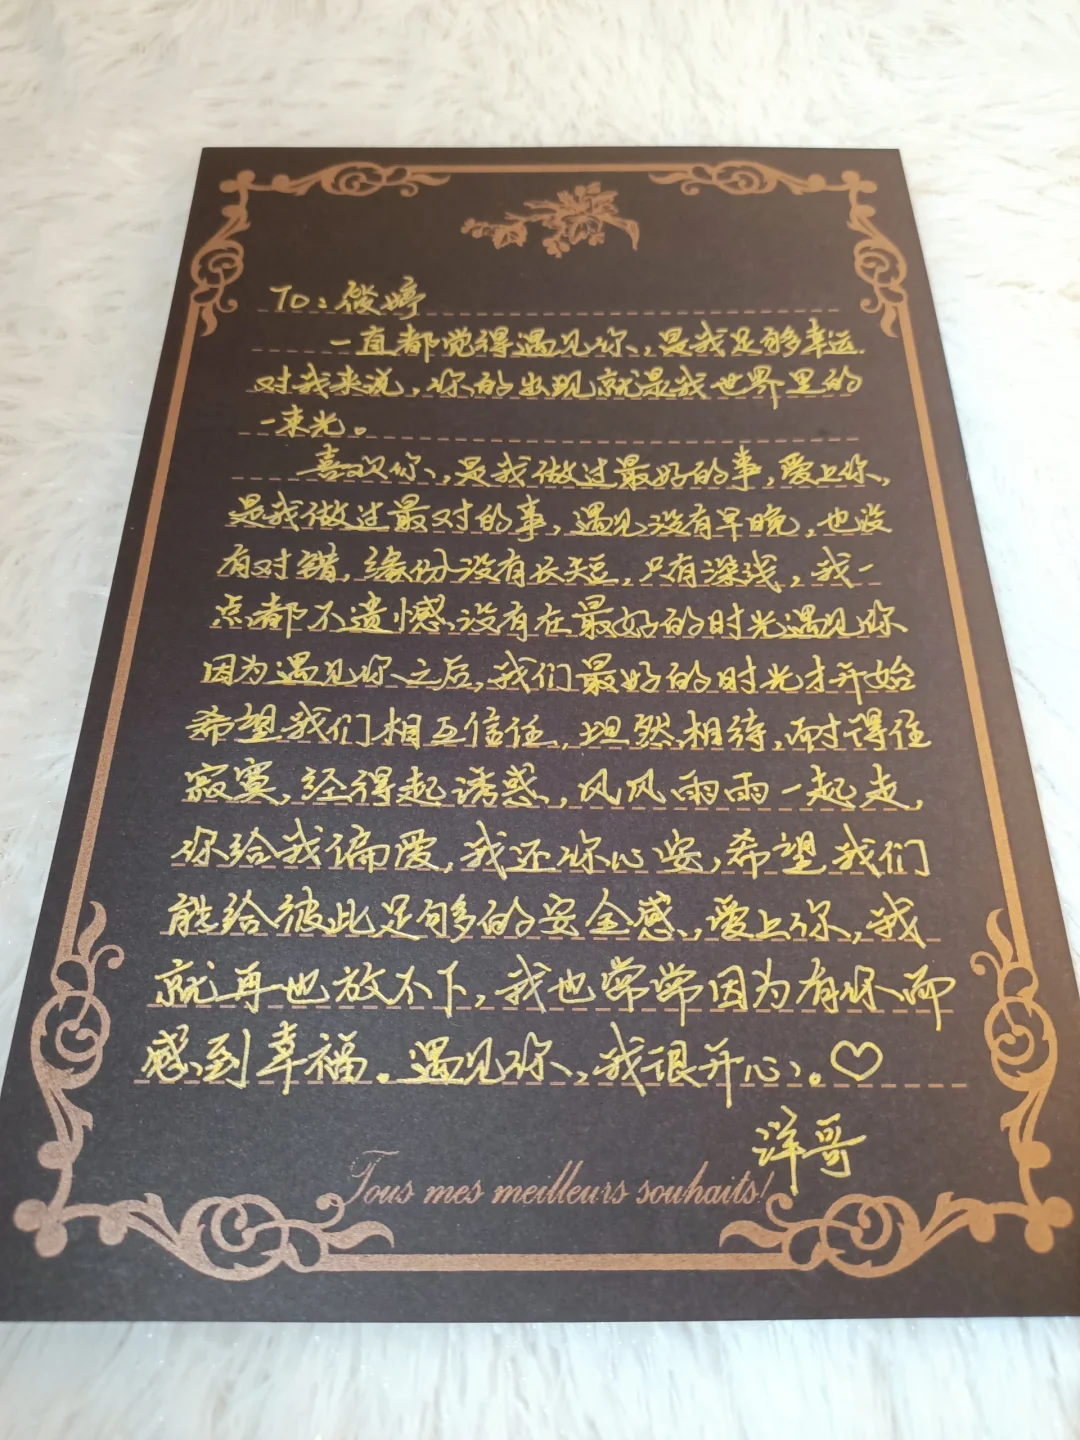 To：筱婷
一直都觉得遇见你，是我足够幸运.
对我来说，你的出现就是我世界里的
一束光。
喜欢你，是我做过最好的事，爱上你，
是我做过最对的事，遇见没有早晚，也没
有对错，缘份没有长短，只有深浅，我一
点都不遗憾没有在最好的时光遇见你
因为遇见你之后，我们最好的时光才开始
希望我们相互信任，坦然相待，耐得住
寂寞，经得起诱惑，风风雨雨一起走，
你给我偏爱，我还你心安，希望我们
能给彼此足够的安全感，爱上你，我
就再也放不下，我也常常因为有你而
感到幸福。遇见你，我很开心。♡
洋哥
Tous mes meilleurs souhaits!